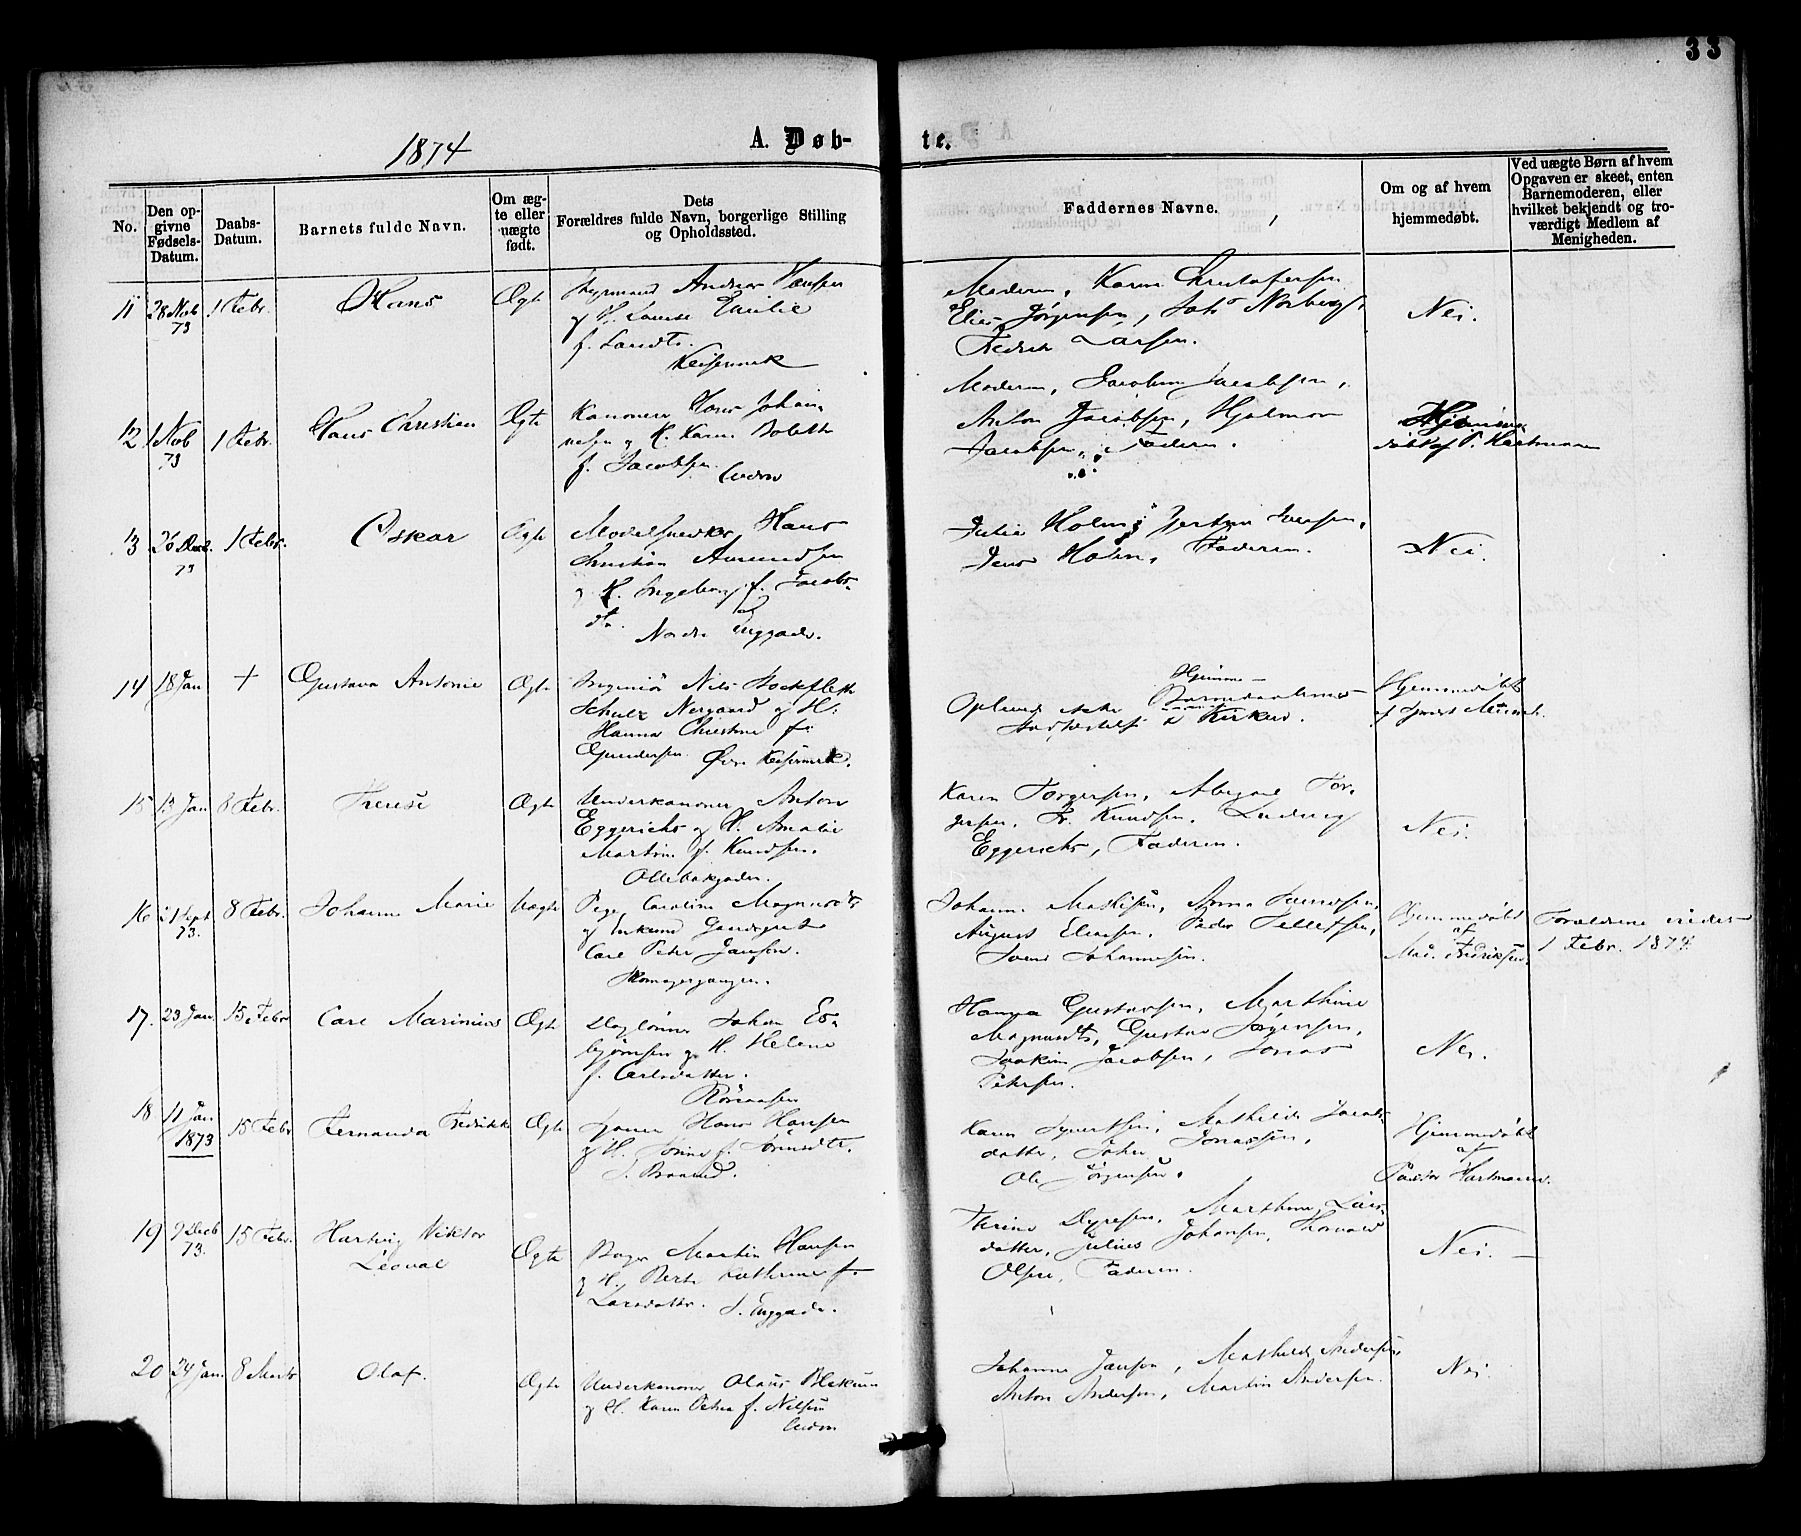 33
1874
A. Døb-
te.
No.
Den op-
givne
Fødsels-
Datum.
Daabs-
Datum.
Barnets fulde Navn.
Om æg-
te eller
uægte
født.
Dets
Forældres fulde Navn, borgerlige Stilling
og Opholdssted.
Faddernes Navne.
Om og af hvem
hjemmedøbt.
Ved uægte Børn af hvem
Opgaven er skeet, enten
Barnemoderen, eller
hvilket bekjendt og tro-
værdigt Medlem af
Menigheden.
11
28 Novb
73
1 Febr.
Hans
Ægte
Andreas Hansen
og H. Louise Emilie
f. Lundts.
Keisemark
Moderen, Karen Christofersen
Elias Jørgensen, Johs Norberg,
Fredrik Larsen.
Nei.
12
1 Nob
73
1 Febr.
Hans Christian
Ægte
Kanoneer Hans Johan-
nesen og H. Karen Bolette
f. Jacobsen.
Moderen, Jacobine Jacobsen,
Anton Jacobsen, Hjalmar
Jacobsen, Faderen.
Hjemme
døbt af P. Hartmann
13
26 Decb.
73
1 Febr.
Oskar
Ægte
Modelsnedker Hans
Christian Amundsen
og H. Ingeborg f. Jacobs-
dtr.
Nordre Enggade.
Julie Holm, Jensen,
Jens Holm, Faderen.
Nei.
14
18 Jan
+
Gustava Antonie
Ægte
Ingeniör Nils Stockfleth
Schulz Nergaard og H.
Hanna Christine f.
Gundersen. Øvre Keisemark.
Hjemme-
Oplæst efter Barnedaabens
Stadfæstelse i Kirken.
Hjemmedöbt
af Munch.
15
13 Jan
8 Febr.
Therese
Ægte
Underkanoneer Anton
Eggerichs og H. Amalie
Martine f. Knudsen.
Ollebakgaden.
Karen Torgersen, Abigael Tor-
gersen, Fr. Knudsen, Ludvig
Eggerichs, Faderen.
Nei.
16
21 Sept
73.
8 Febr.
Johanne Marie
Uægte
Pige Caroline Magnusdtr
og Carl Peter Jansen.
Johanne Mathisen, Anna Knudsen,
August Eliasen, Peder Tellefsen,
Svend Johannesen.
Hjemmedöbt
af
Mad. Fredriksen.
Forældrene viede
1 Febr. 1874
17.
23 Jan.
15 Febr
Carl Marinius
Ægte
Daglönner Johan Es-
bjørnsen og H. Helene
f. Carlsdatter.
Hanna Gustavsen, Marthine
Magnusdtr, Gustav Jørgensen,
Joakim Jacobsen, Jonas
Petersen.
Nei.
18
11 Jan
1873
15 Febr
Fernanda Fredrikke
Ægte
Hans Hansen
og H. Jörine f. Jörensdtr.
Karen Syvertsen, Mathilde Jacobs-
datter, Johan Jonassen,
Ole Jørgensen.
Hjemmedöbt
af
Pastor Hartmann.
19
9 Decb
73.
15 Febr.
Hartvig Viktor
Leoval
Ægte
Bager Martin Hansen
og H. Berte Kathrine f.
Larsdatter. S. Enggade.
Thrine Dyresen, Marthine Lars-
datter, Julius Johansen, Thorvald
Olsen, Faderen.
Nei.
20
24 Jan.
8 Marts
Olaf.
Ægte
Underkanoner Olaus
og H. Karen Petrea f. Nilsen
Johanne Jansen, Mathilde Andersen,
Anton Andersen, Martin Andersen.
Nei.